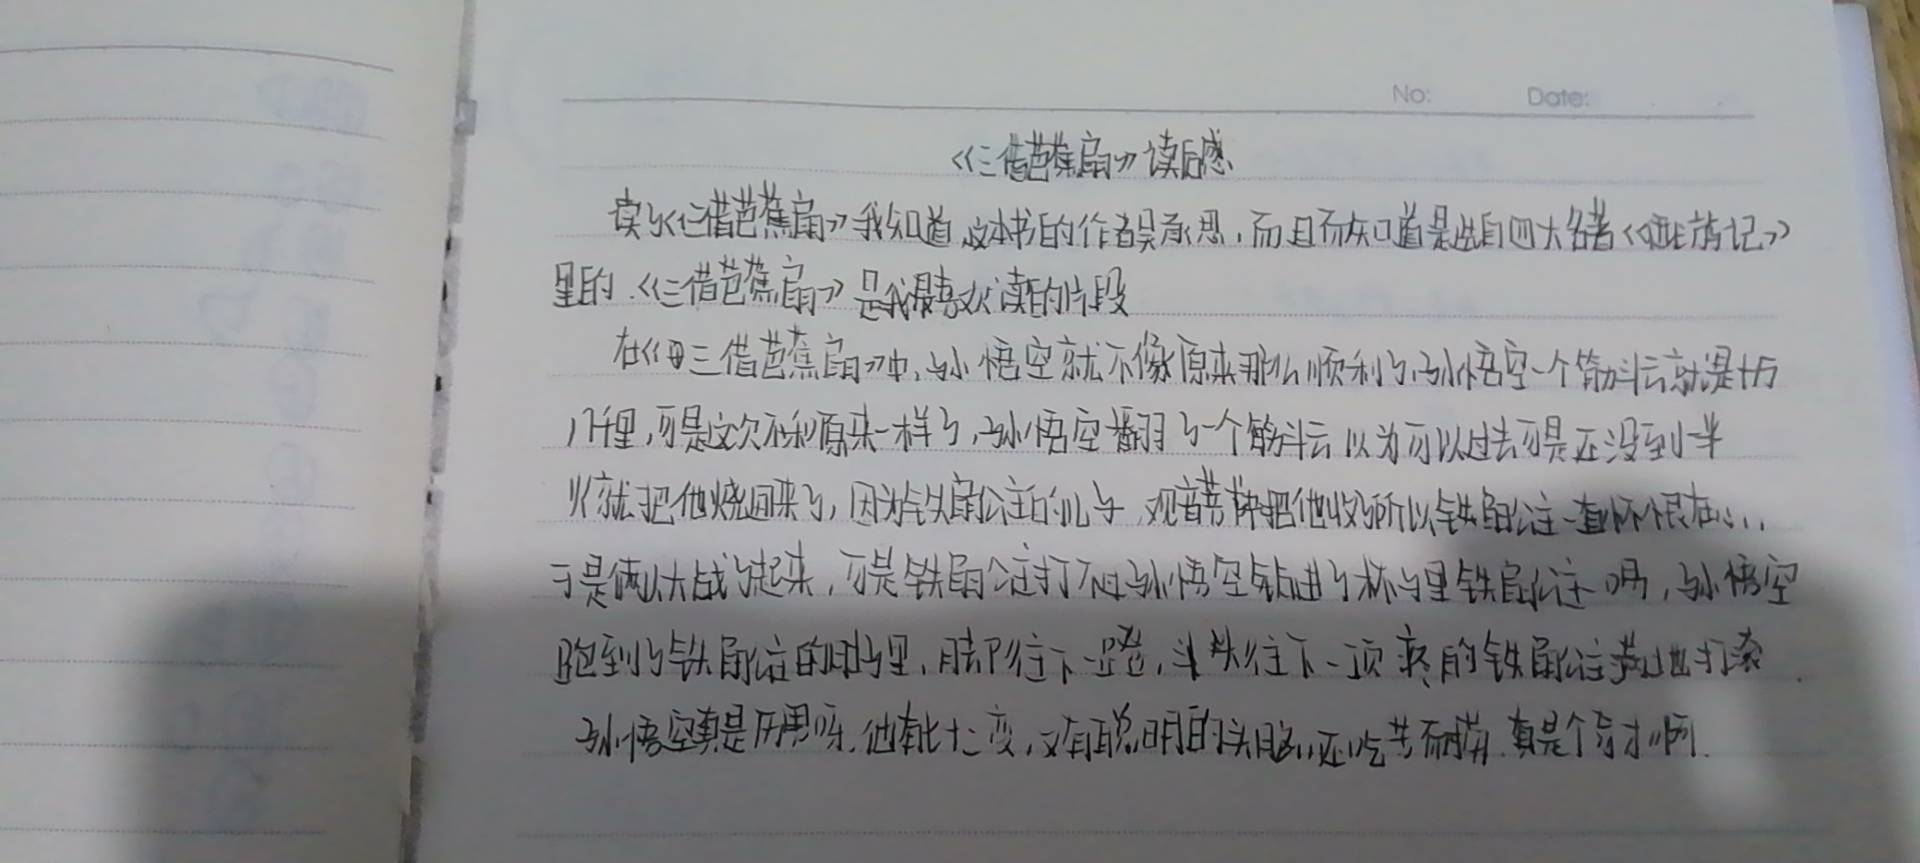 No: Date:
《三借芭蕉扇》读后感
读了《三借芭蕉扇》我知道这本书的作者吴承恩,而且而知道是选自四大名著《西游记》
里的.《三借芭蕉扇》是我最喜欢读的片段
在《三借芭蕉扇》中,孙悟空就不像原来那么顺利了,孙悟空一个筋斗云就是十万
八千里,可是这次不和原来一样了,孙悟空翻了一个筋斗云以为可以过去可是还没到一半
火就把他烧回来了,因为铁扇公主的儿子,观音菩萨把他收了所以铁扇公主一直怀恨在心,
于是俩人大战了起来,可是铁扇公主打不过孙悟空钻进了杯子里铁扇公主一喝,孙悟空
跑到了铁扇公主的肚子里,脚往下一蹬,头往下一顶疼的铁扇公主满地打滚.
孙悟空真是厉害呀.他有七十二变,又有聪明的头脑,还吃苦耐劳.真是个奇才啊.